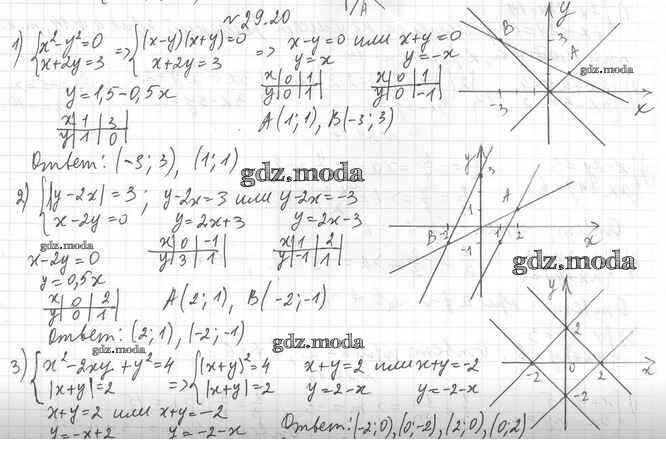 № 29.20
1) {x²-y²=0 => {(x-y)(x+y)=0 => x-y=0 или x+y=0
x+2y=3 x+2y=3 y=x y=-x
y=1,5-0,5x x|0|1 x|0|1
y|0|1 y|0|-1
x|1|3 A(1;1), B(-3;3)
y|1|0
Ответ: (-3;3), (1;1)
gdz.moda
2) {|y-2x|=3; y-2x=3 или y-2x=-3
x-2y=0 y=2x+3 y=2x-3
gdz.moda
x-2y=0 x|0|-1 x|1|2
y=0,5x y|3|1 y|-1|1
x|0|2 A(2;1), B(-2;-1)
y|0|1
Ответ: (2;1), (-2;-1)
gdz.moda
gdz.moda
3) {x²-2xy+y²=4 => {(x+y)²=4 x+y=2 или x+y=-2
|x+y|=2 |x+y|=2 y=2-x y=-2-x
x+y=2 или x+y=-2
y=-x+2 y=-2-x Ответ: (-2;0), (0;-2), (2;0), (0;2)
A
y
B
3
A
gdz.moda
-3
x
y
3
A
1
B
-2
1
2
-1
x
gdz.moda
y
2
-2
0
2
x
-2